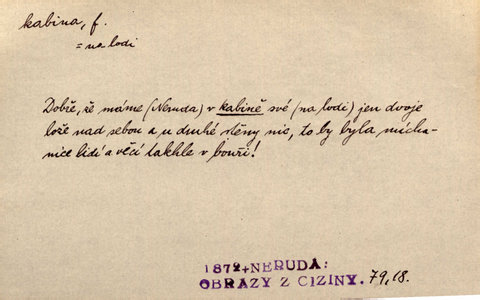 kabina, f.
= na lodi
Dobře, že máme (Neruda) v kabině své (na lodi) jen dvoje
lože nad sebou a u druhé stěny nic, to by byla mícha-
nice lidí a věcí takhle v bouři!
1872+NERUDA:
OBRAZY Z CIZINY. 79,18.